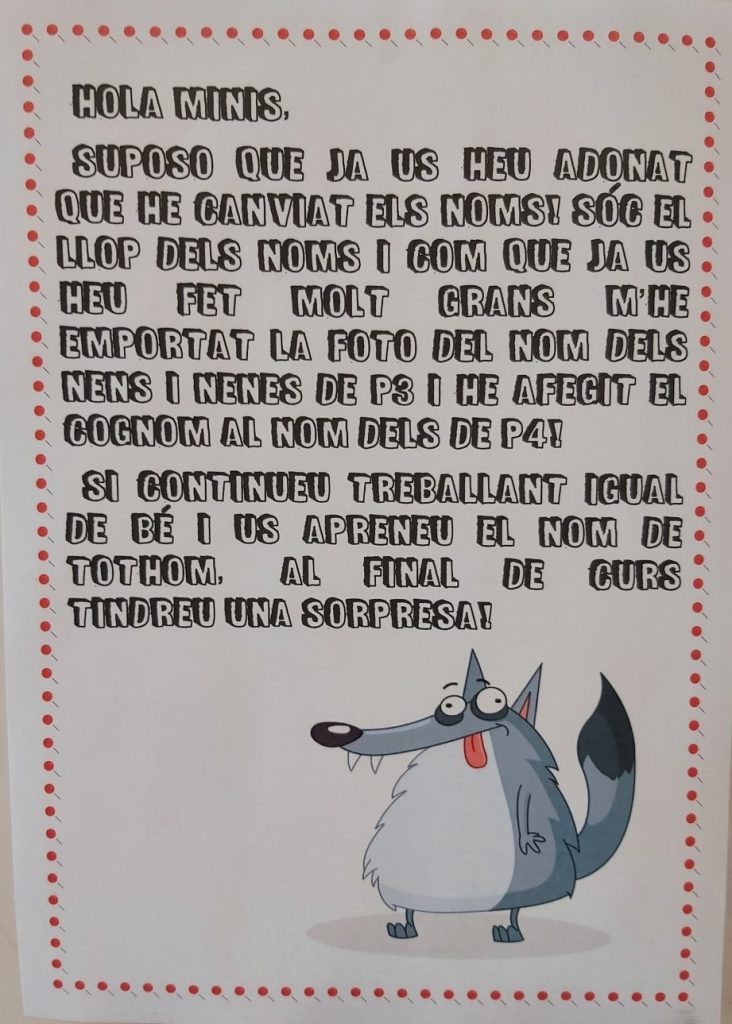 HOLA MINIS,
SUPOSO QUE JA US HEU ADONAT
QUE HE CANVIAT ELS NOMS! SÓC EL
LLOP DELS NOMS I COM QUE JA US
HEU FET MOLT GRANS M'HE
EMPORTAT LA FOTO DEL NOM DELS
NENS I NENES DE P3 I HE AFEGIT EL
COGNOM AL NOM DELS DE P4!
SI CONTINUEU TREBALLANT IGUAL
DE BÉ I US APRENEU EL NOM DE
TOTHOM, AL FINAL DE CURS
TINDREU UNA SORPRESA!